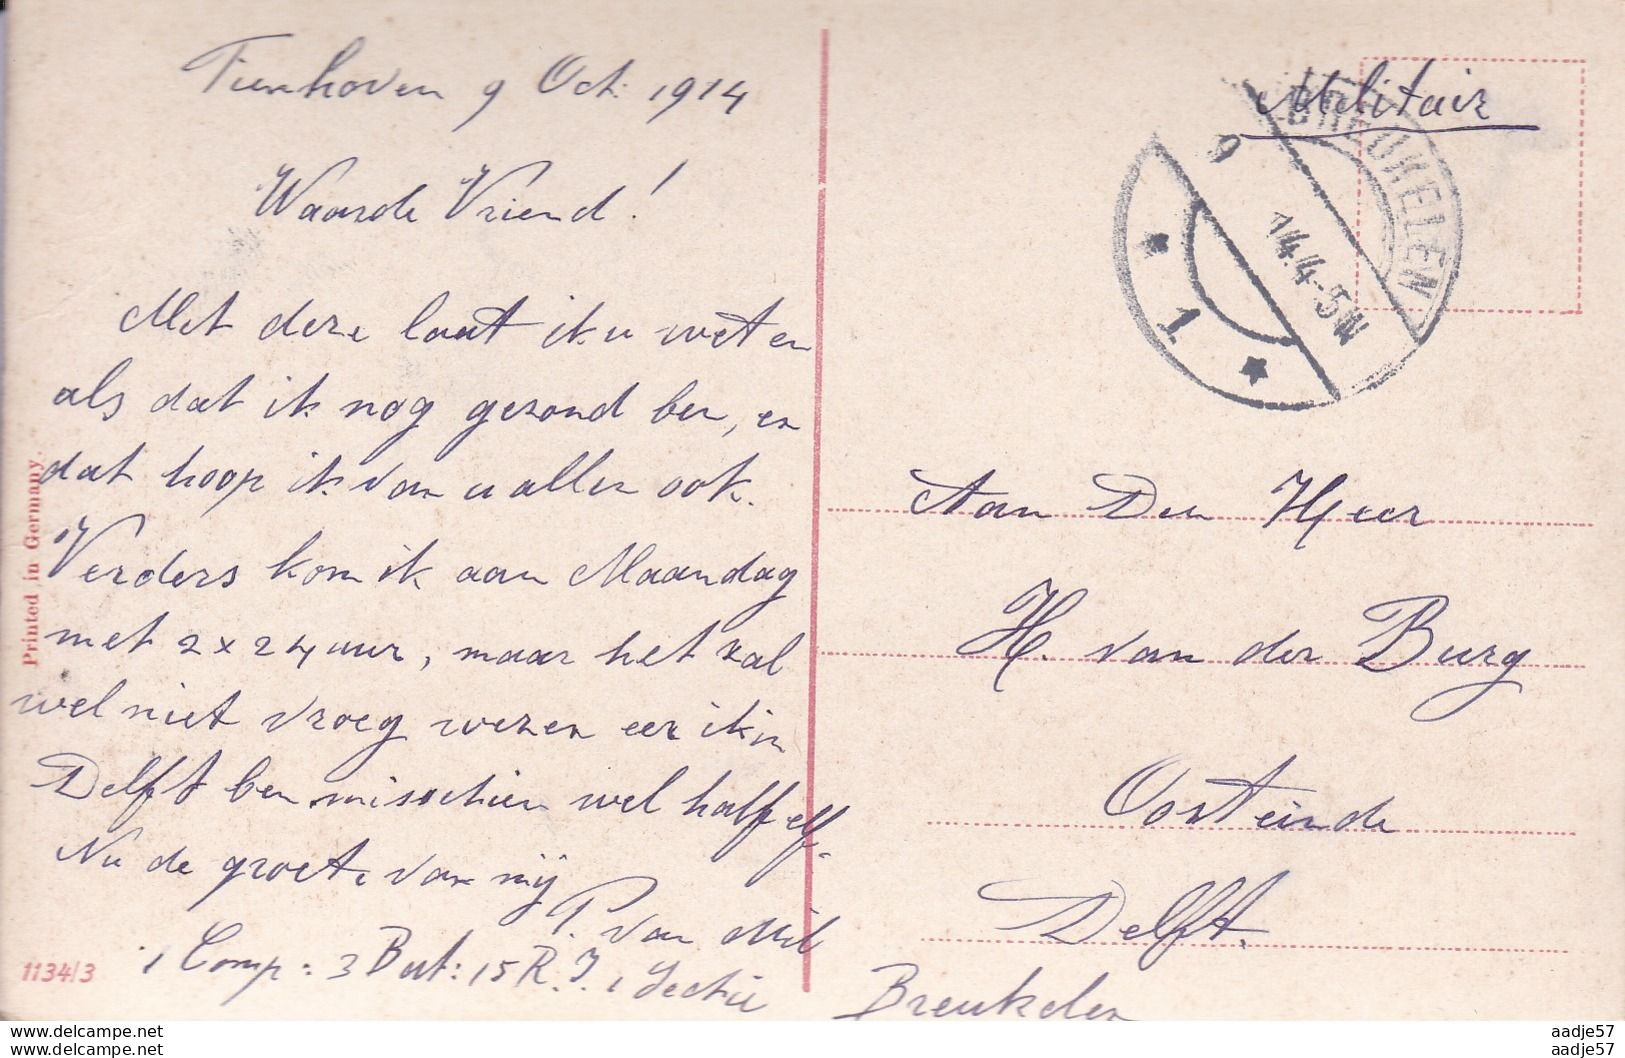 Tienhoven 9 Oct. 1914
Waarde Vriend!
Met deze laat ik u weten
als dat ik nog gezond ben, en
dat hoop ik van u allen ook.
Verders kom ik aan Maandag
met 2 x 24 uur, maar het zal
wel niet vroeg wezen eer ik in
Delft ben misschien wel half elf.
Nu de groete van mij
P. van Mil
1 Comp: 3 Bat: 15 R. I. 1 Sectie
Breukelen
Printed in Germany.
1134/3
Militair
BREUKELEN
9
14.4-5N
* 1 *
Aan Den Heer
H. van der Burg
Oosteinde
Delft.
www.delcampe.com
www.delcampe.com
aadje57
aadje57